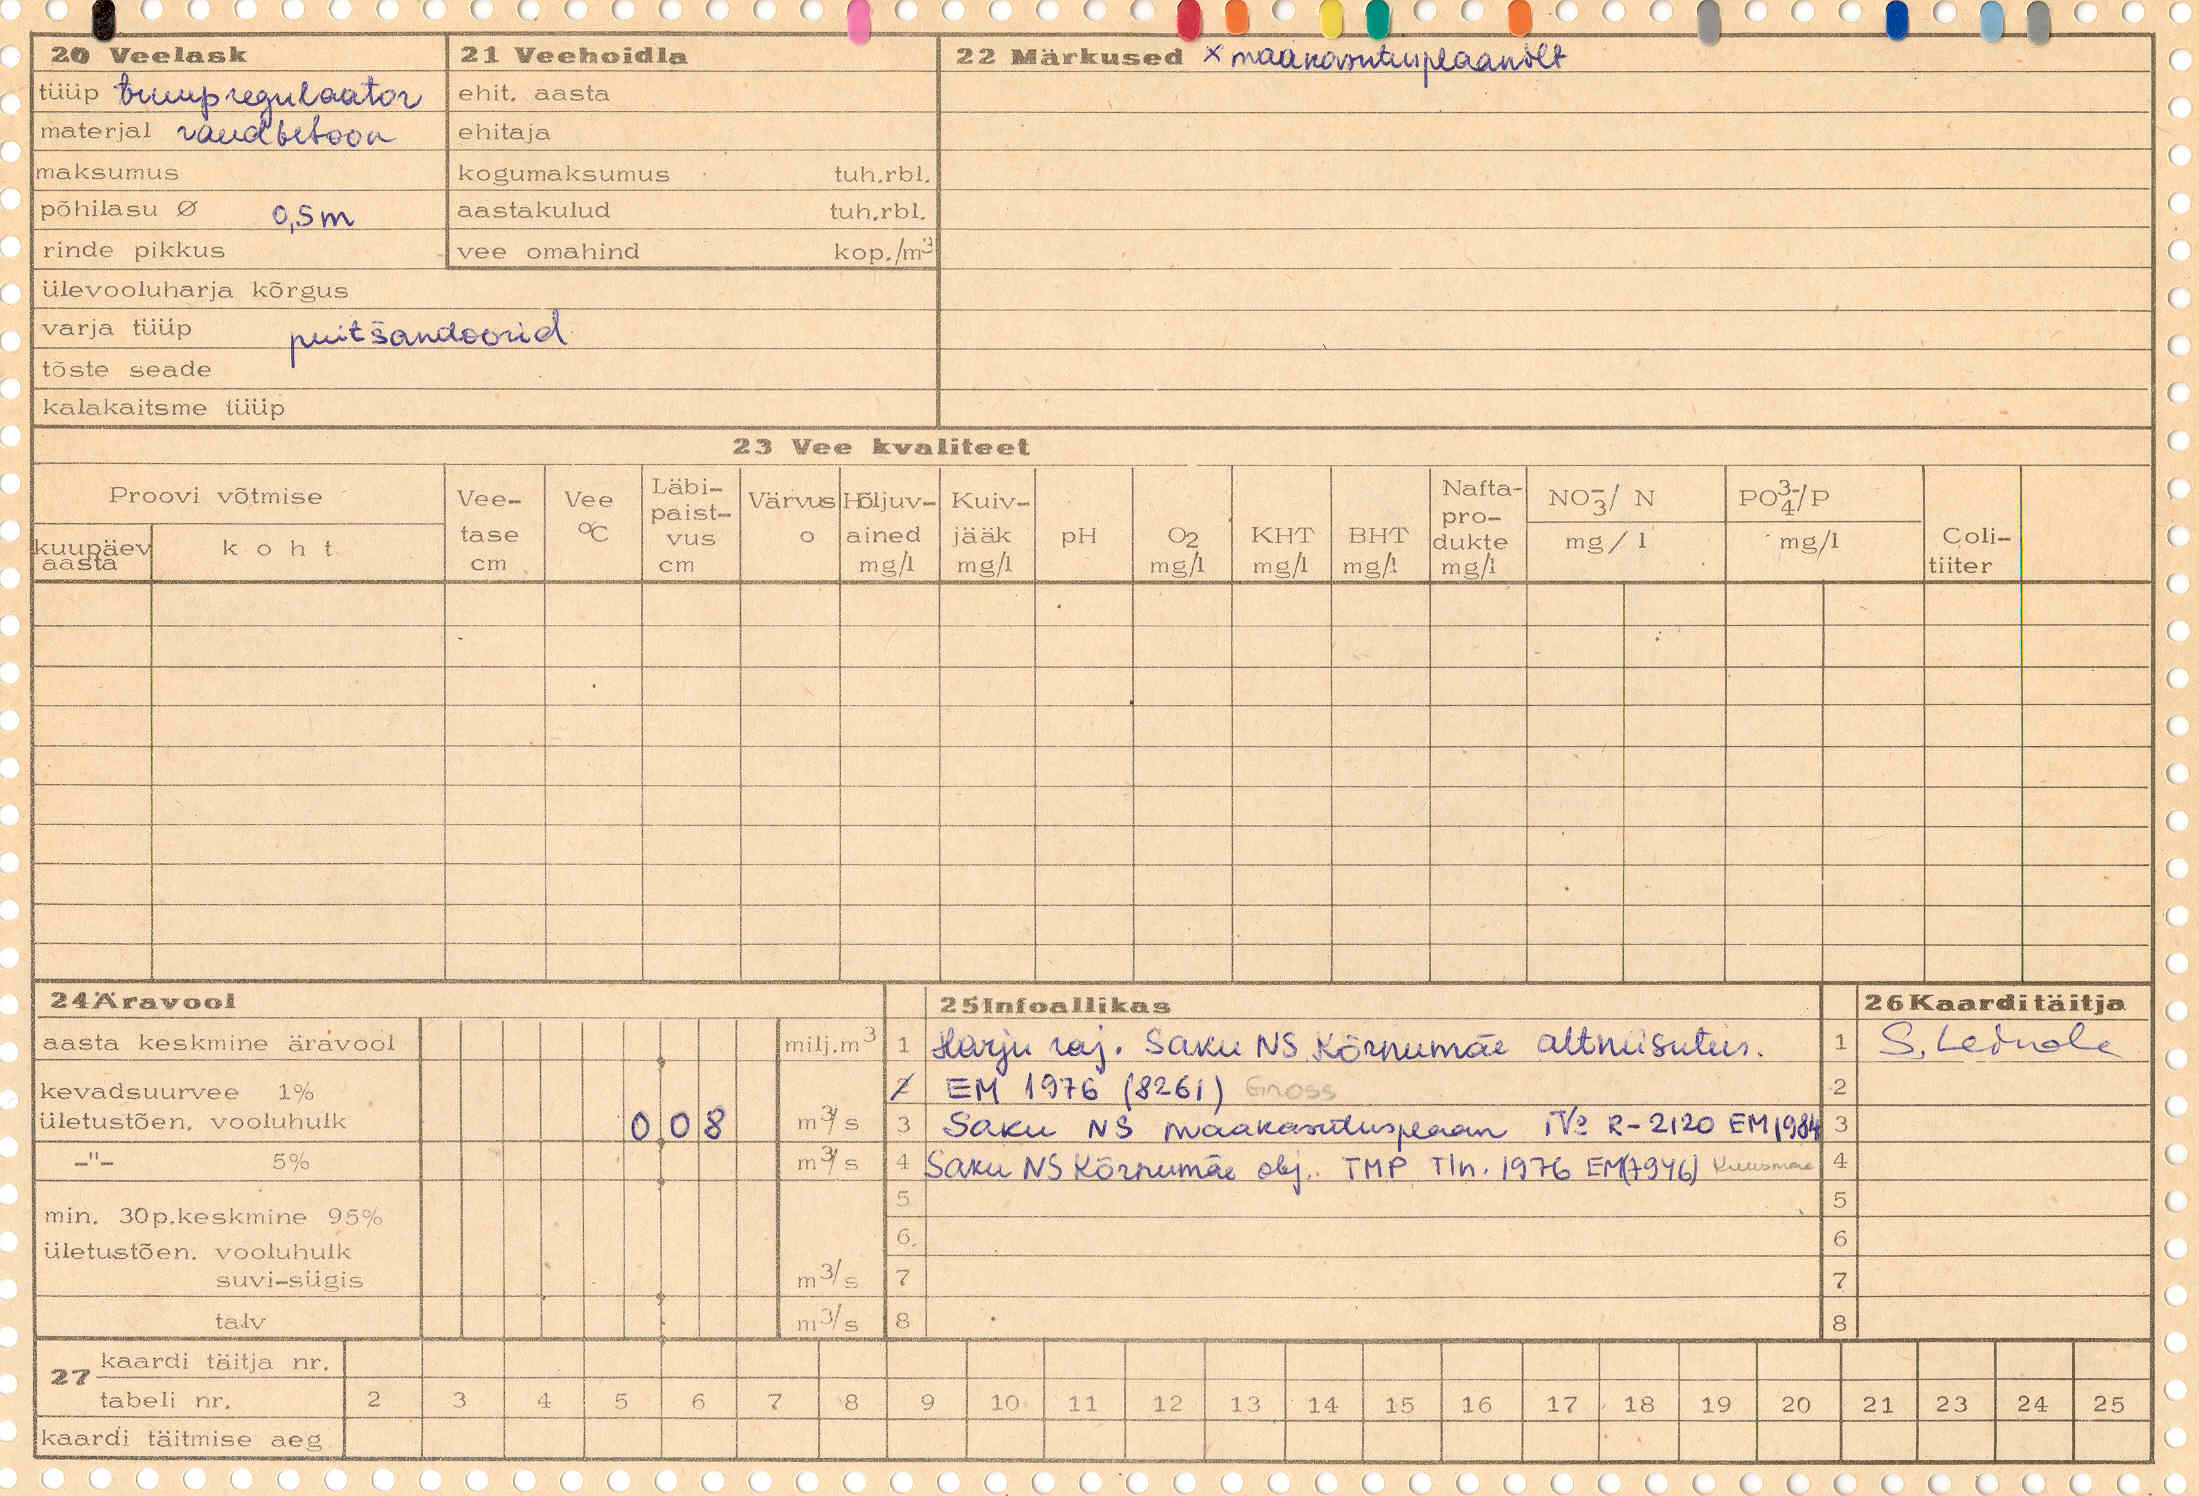 20 Veelask
tüüp truupregulaator
materjal raudbetoon
maksumus
põhilasu Ø 0,5m
rinde pikkus
ülevooluharja kõrgus
varja tüüp puitšandoorid
tõste seade
kalakaitsme tüüp
21 Veehoidla
ehit. aasta
ehitaja
kogumaksumus tuh.rbl.
aastakulud tuh.rbl.
vee omahind kop./m³
22 Märkused x maakasutusplaanilt
23 Vee kvaliteet
Proovi võtmise
kuupäev aasta
koht
Vee-
tase
cm
Vee
°C
Läbi-
paist-
vus
cm
Värvus
o
Hõljuv-
ained
mg/l
Kuiv-
jääk
mg/l
pH
O2
mg/l
KHT
mg/l
BHT
mg/l
Nafta-
pro-
dukte
mg/l
NO₃⁻/ N
mg/l
PO₄³⁻/P
mg/l
Coli-
tiiter
24 Äravool
aasta keskmine äravool milj.m³
kevadsuurvee 1%
ületustõen. vooluhulk 0 0 8 m³/s
-"- 5% m³/s
min. 30p.keskmine 95%
ületustõen. vooluhulk
suvi-sügis m³/s
talv m³/s
25 Infoallikas
1 Harju raj. Saku NS Kõrnumäe altniisutus.
2 EM 1976 (8261) Gross
3 Saku NS maakasutusplaan № R-2120 EM 1984
4 Saku NS Kõrnumäe obj. TMP Tln. 1976 EM(7946) Kuusmäe
5
6
7
8
26 Kaardi täitja
1 S. Leinola
2
3
4
5
6
7
8
27 kaardi täitja nr.
tabeli nr. 2 3 4 5 6 7 8 9 10 11 12 13 14 15 16 17 18 19 20 21 23 24 25
kaardi täitmise aeg